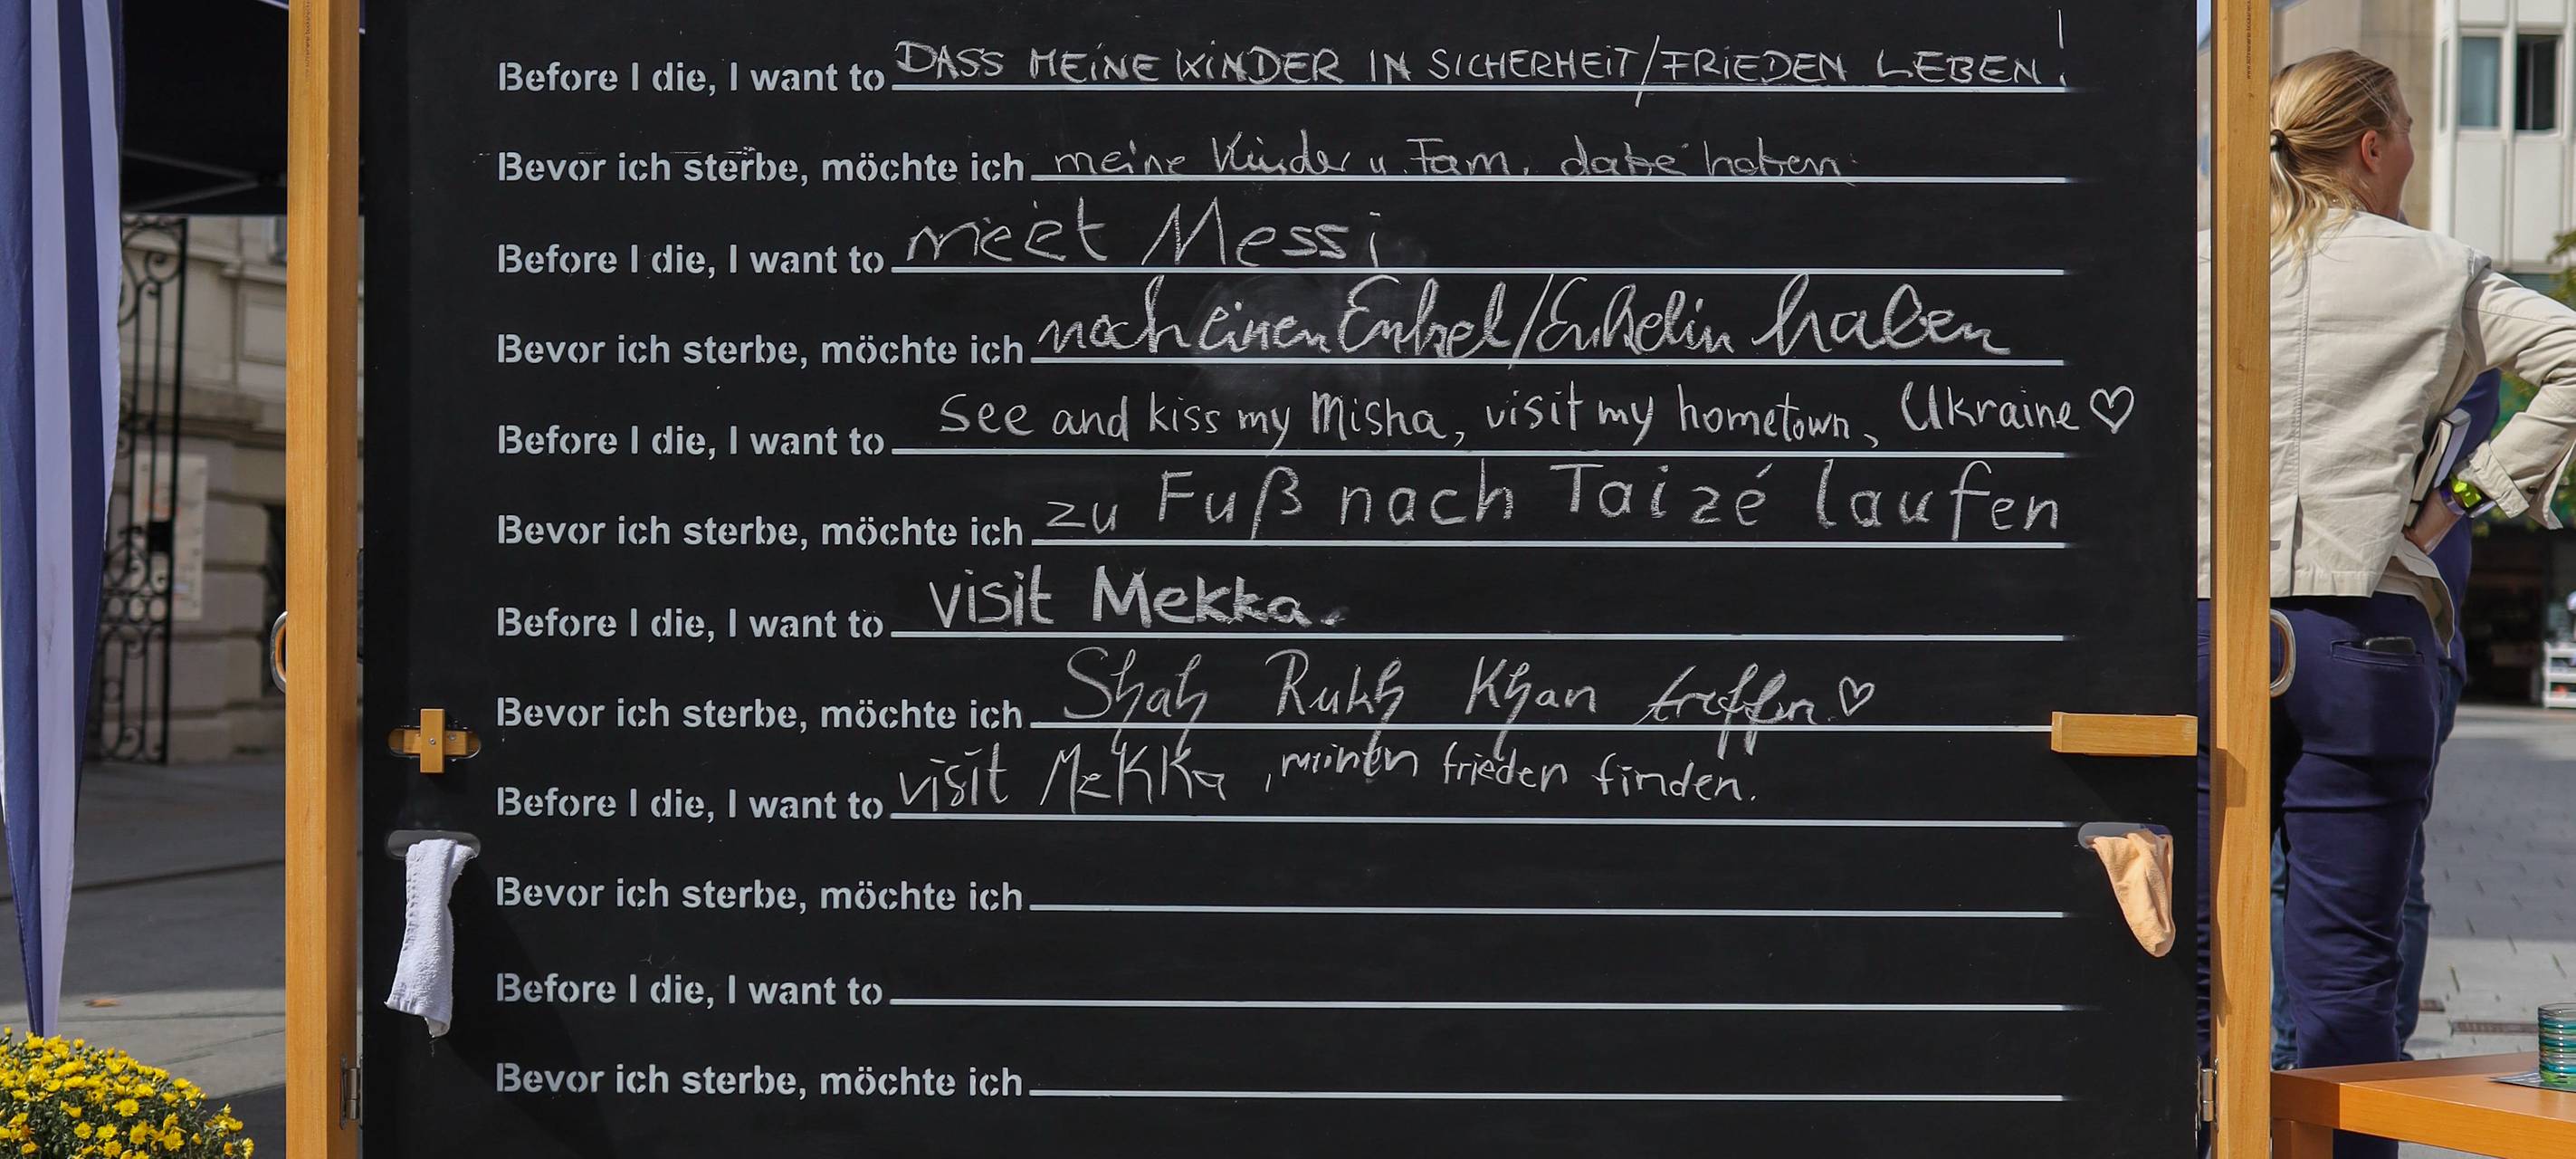 Before I die, I want to DASS MEINE KINDER IN SICHERHEIT/FRIEDEN LEBEN!
Bevor ich sterbe, möchte ich meine Kinder u. Fam. dabe haben
Before I die, I want to meet Messi
Bevor ich sterbe, möchte ich noch einen Enkel/Enkelin haben
Before I die, I want to See and kiss my Misha, visit my hometown, Ukraine ♡
Bevor ich sterbe, möchte ich zu Fuß nach Taizé laufen
Before I die, I want to visit Mekka.
Bevor ich sterbe, möchte ich Shah Rukh Khan treffen ♡
Before I die, I want to visit MeKKa, frieden finden.
Bevor ich sterbe, möchte ich
Before I die, I want to
Bevor ich sterbe, möchte ich